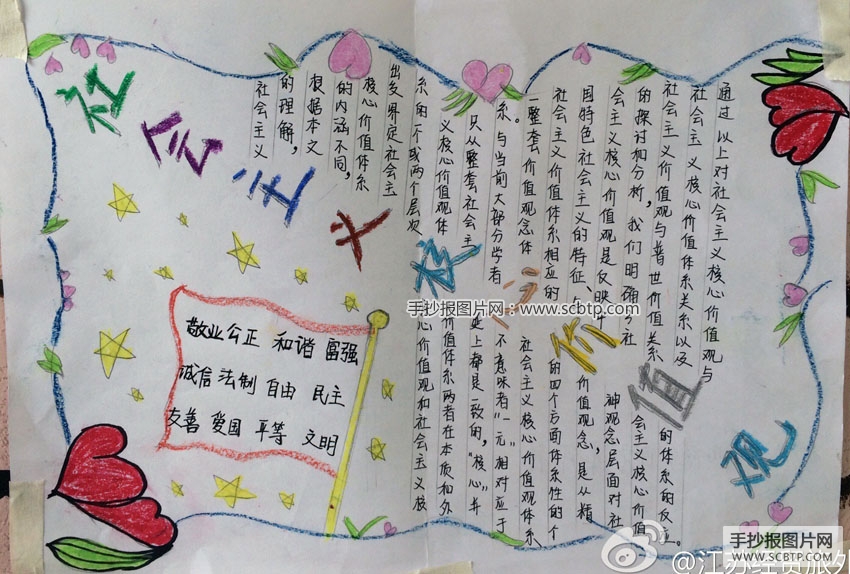 社会主义核心价值观
通过以上对社会主义核心价值观与
社会主义核心价值体系关系以及
社会主义价值观与普世价值关系
的探讨和分析，我们明确了社
会主义核心价值观是反映
国特色社会主义的特征、与
社会主义价值体系相应的
一整套价值观念体
系。与当前大部分学者
只从整套社会主
义核心价值观体
系的一个或两个层次
出发界定社会主
核心价值体系
的内涵不同，
根据本文
的理解，
社会主义
心价值观和社会主义核
价值体系两者在本质和外
延上都是一致的，“核心”并
不意味者“一元”相对应于
社会主义核心价值观体系
的四个方面体系性的个
价值观念，是从精
神观念层面对社
会主义核心价值
的体系的反主。
敬业 公正 和谐 富强
诚信 法制 自由 民主
友善 爱国 平等 文明
手抄报图片网：www.scbtp.com
手抄报图片网
SCBTP.COM